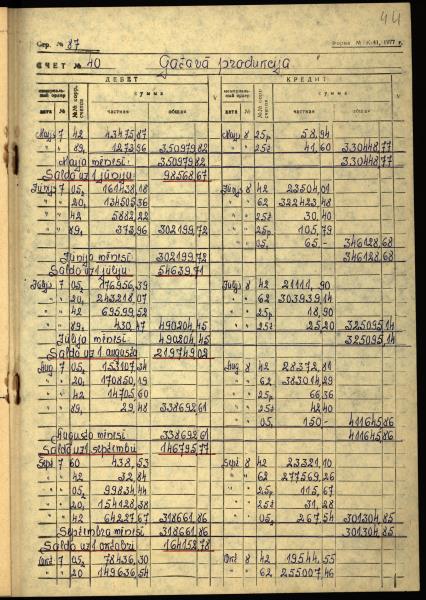 44
Стр. № 87
Форма № К-41, 1977 г.
СЧЕТ № 40 Gatavā produkcija
ДЕБЕТ КРЕДИТ
мемориальный ордер №№ корр. счетов сумма V мемориальный ордер №№ корр. счетов сумма V
дата № частная общая дата № частная общая
Maijs 7 42 43475,87 Maijs 8 25р 58,94
" " 89, 1273,96 350979,82 " " 25 41,60 330448,77
Maija mēnesi: 350979,82 330448,77
Saldo uz 1 jūniju 98568,67
Jūnijs 7 05, 161438,18 Jūnijs 8 42 23504,01
" " 20, 134505,36 " " 62 322423,48
" " 42 5882,22 " " 25 30,40
" " 89, 373,96 302199,72 " " 25р 105,79
" " 05, 65,- 346128,68
Jūnija mēnesi 302199,72 346128,68
Saldo uz 1 jūliju 54639,71
Jūlijs 7 05, 176956,39 Jūlijs 8 42 21111,90
" " 20, 243218,07 " " 62 303939,14
" " 42 69599,52 " " 25р 18,90
" " 89, 430,47 490204,45 " " 25 25,20 325095,14
Jūlija mēnesi 490204,45 325095,14
Saldo uz 1 augustu 219749,02
Aug. 7 05, 153107,34 Aug. 8 42 28372,81
" " 20, 170850,19 " " 62 383014,29
" " 42 14705,60 " " 25р 66,36
" " 89, 29,48 338692,61 " " 25 42,40
" " 05, 150,- 411645,86
Augusta mēnesi 338692,61 411645,86
Saldo uz 1 septembri 146795,77
Sept. 7 60 438,53 Sept. 8 42 23321,10
" " 42 32,84 " " 62 277569,26
" " 05, 99834,44 " " 25р 115,67
" " 20, 154128,38 " " 25 31,28
" " 42 64227,67 318661,86 " " 05, 267,54 301304,85
Septembra mēnesi 318661,86 301304,85
Saldo uz 1 oktobri 164152,78
Okt. 7 05, 78436,30 Okt. 8 42 19544,55
" " 20 149636,54 " " 62 255007,46